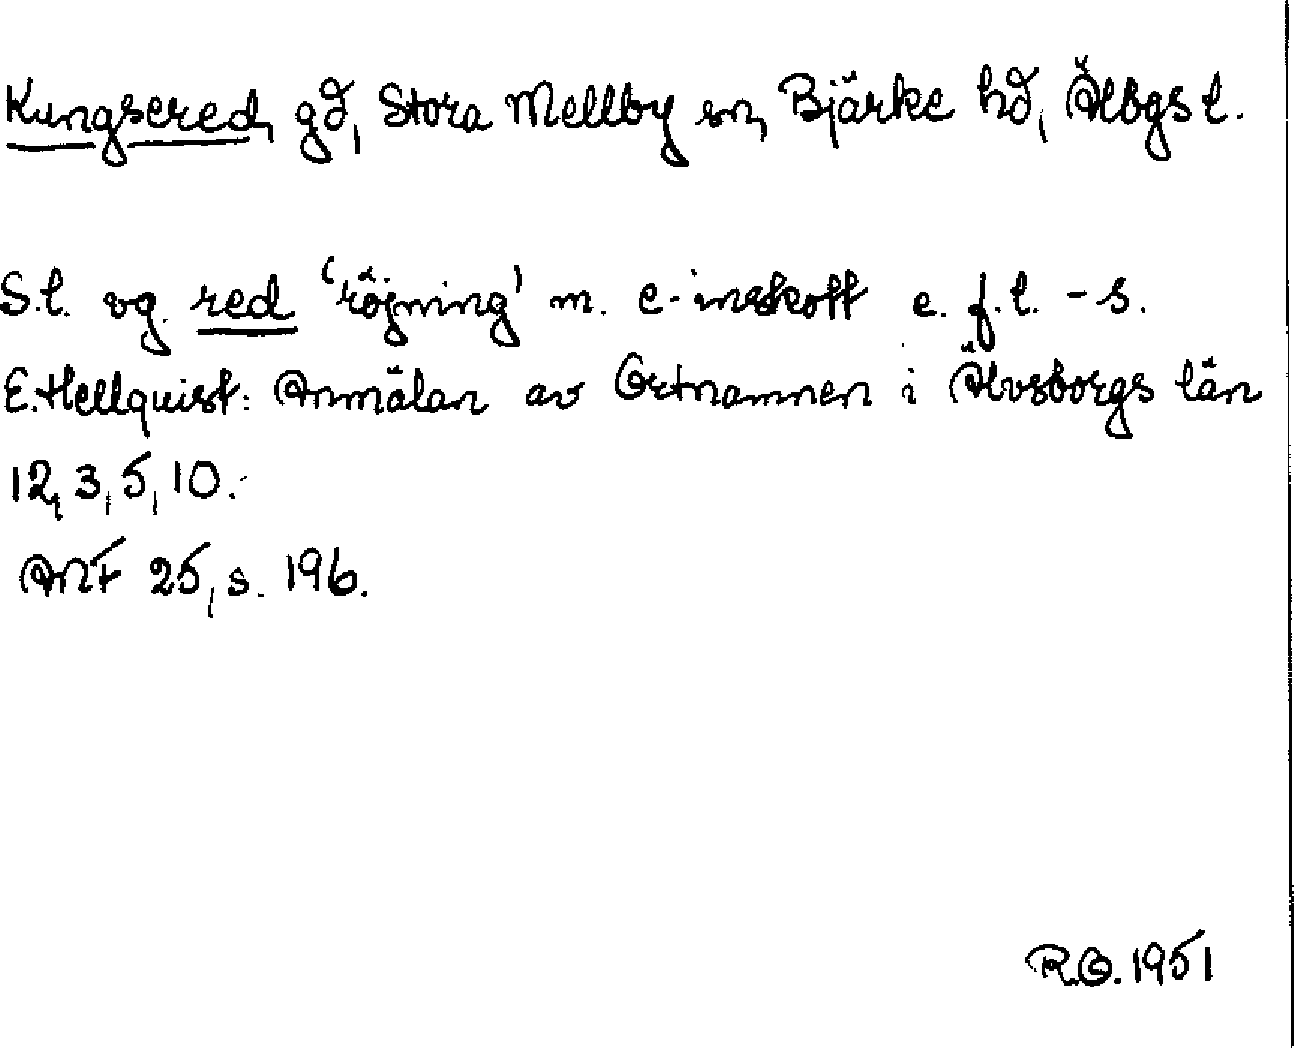 Kungsered, gd, Stora Mellby sn, Bjärke hd, Älvbgs l.
S.l. vg. red 'röjning' m. e-inskott e. f.l. -s.
E. Hellquist: Anmälan av Ortnamnen i Älvsborgs län
12, 3, 5, 10.
ANF 25, s. 196.
R.O. 1951